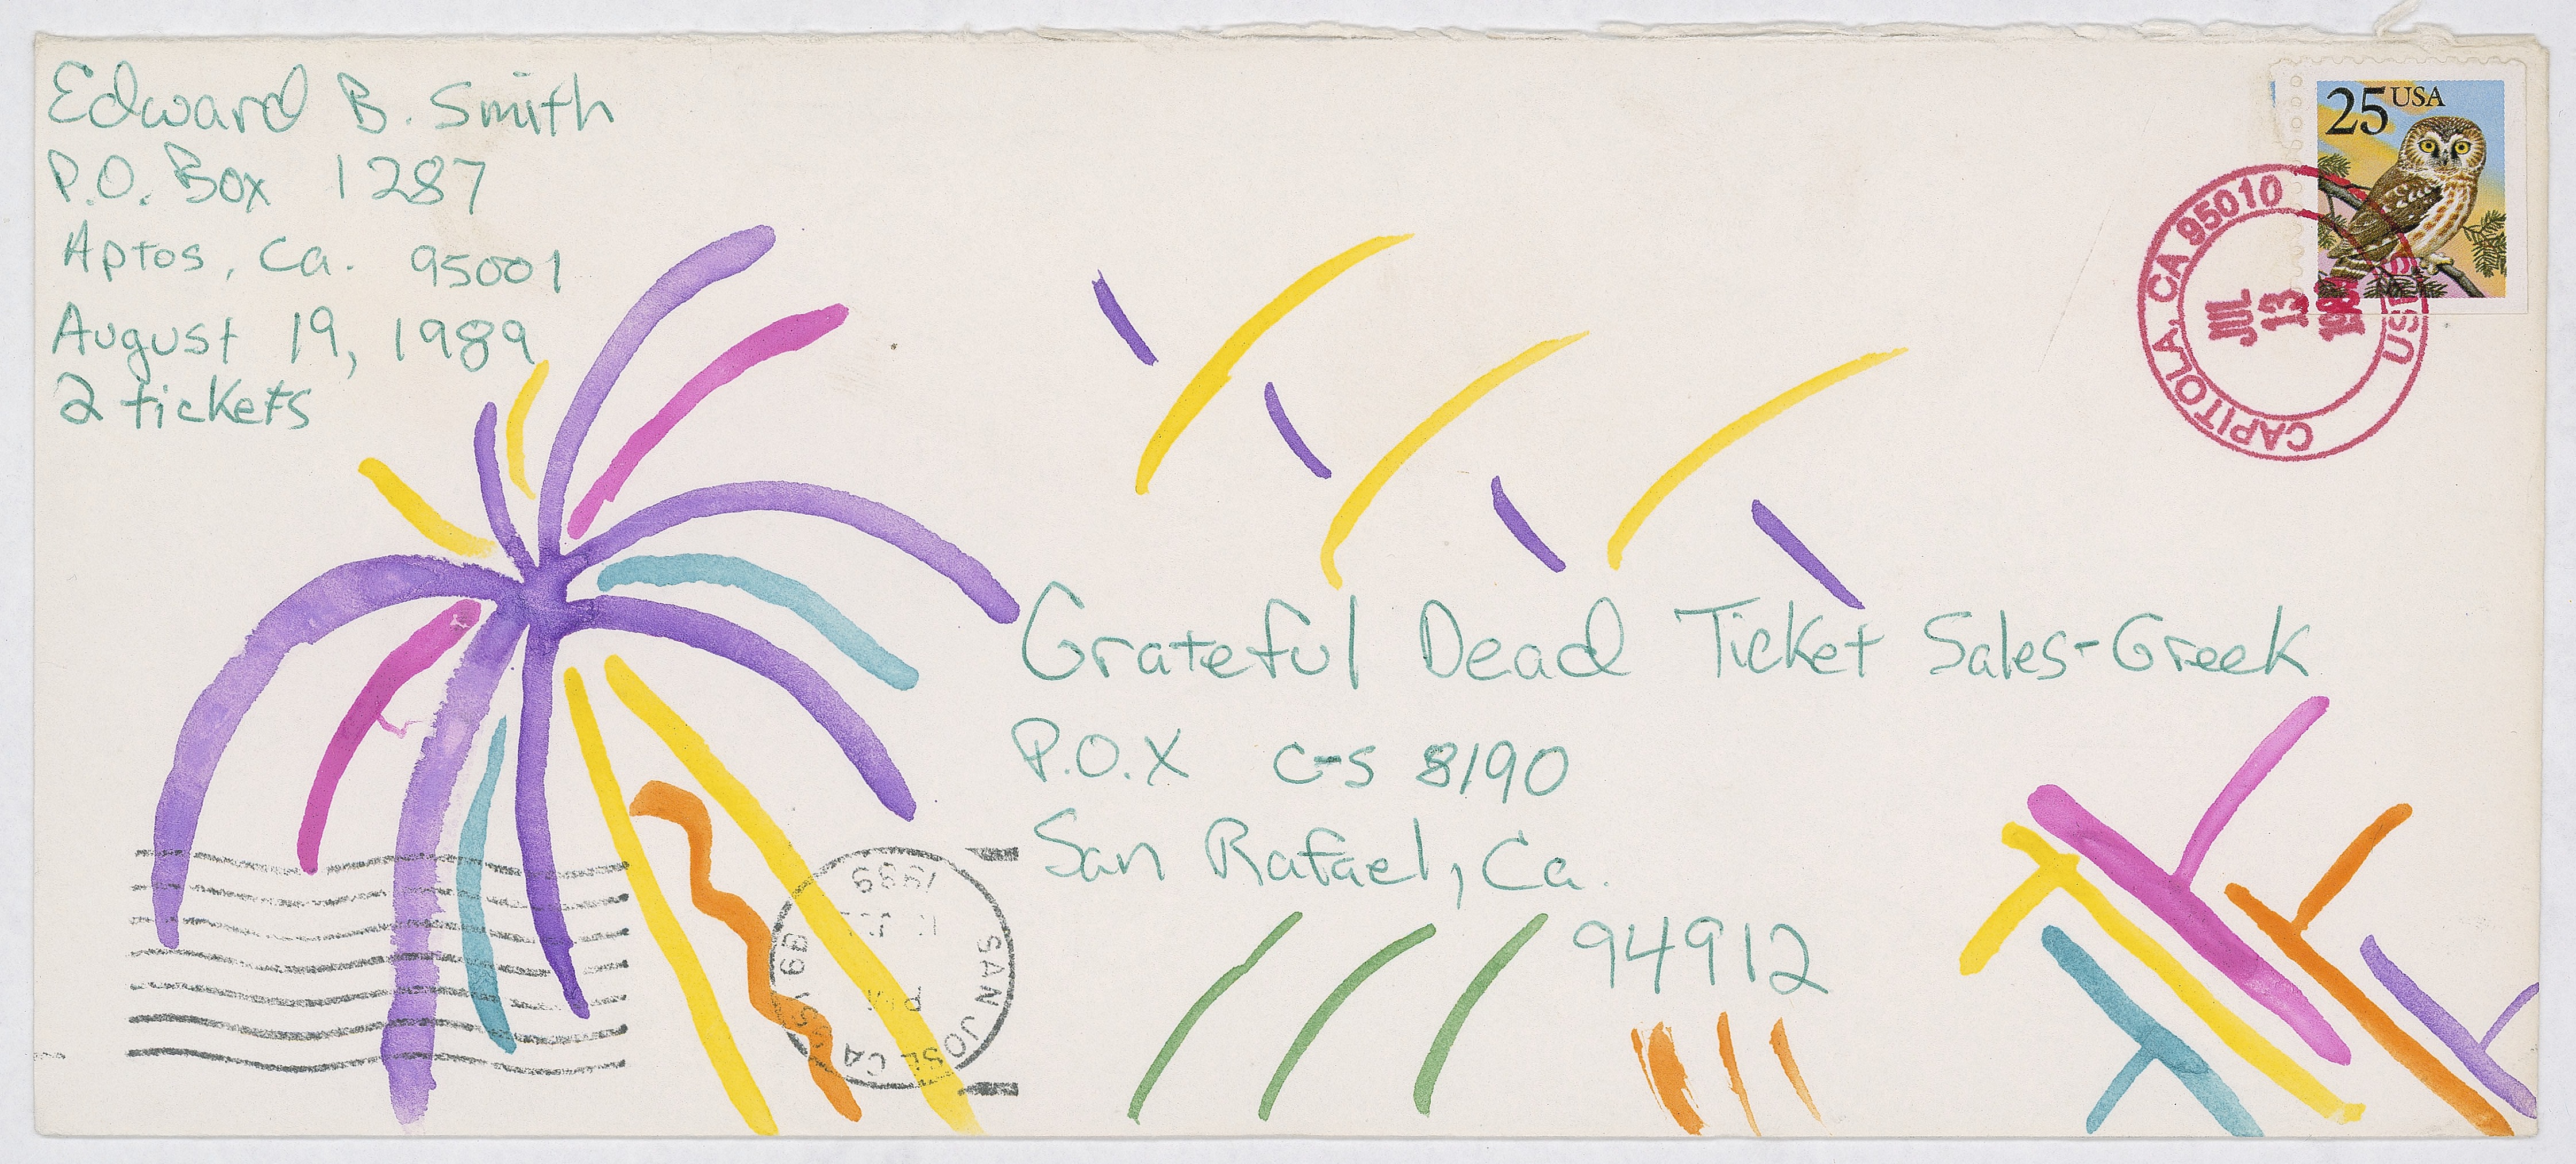 Edward B. Smith
P.O. Box 1287
Aptos, Ca. 95001
August 19, 1989
2 tickets
25 USA
CAPITOLA, CA 95010
JUL
13
USPS
Grateful Dead Ticket Sales-Greek
P.O.X C-S 8190
San Rafael, Ca.
94912
SAN JOSE CA
PM
1989